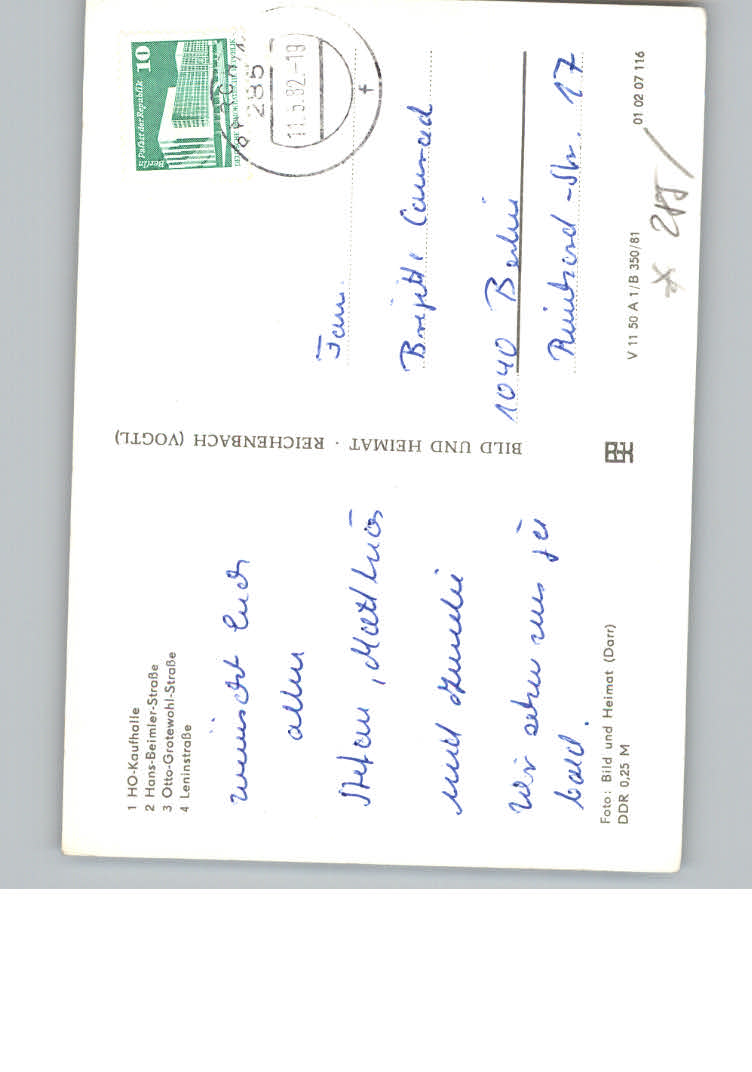 1 HO-Kaufhalle
2 Hans-Beimler-Straße
3 Otto-Grotewohl-Straße
4 Leninstraße
wünscht Euch
allen
Stefan, Matthias
und Familie
Wir sehen uns ja
bald.
Foto: Bild und Heimat (Darr)
DDR 0,25 M
BILD UND HEIMAT · REICHENBACH (VOGTL)
10
Palast der Republik
Berlin
285
11.5.82.-19
Fam.
Brigitte Conrad
1040 Berlin
Reinhard-Str. 17
V 11 50 A 1/B 350/81
01 02 07 116